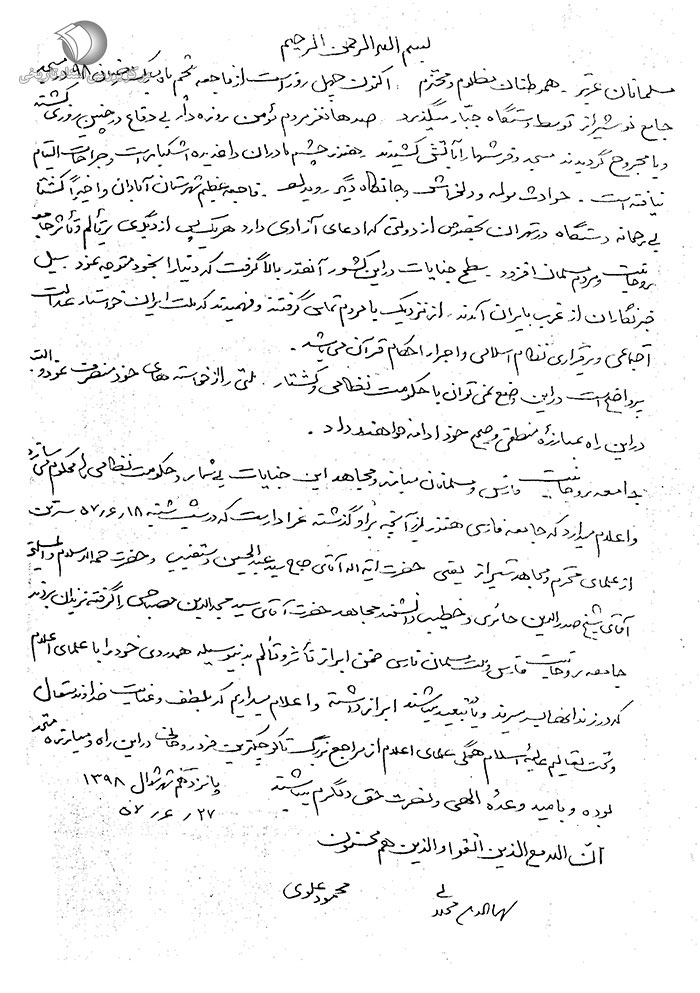 بسم الله الرحمن الرحیم
مرکز بررسی اسناد تاریخی
مسلمانان عزیز - هموطنان مظلوم و محترم اکنون چهل روز است از فاجعه پنجم ماه مبارک رمضان ۹۸ در مسجد
جامع نو شیراز توسط دستگاه جبار میگذرد. صدها نفر مردم مؤمن روزه دار بی دفاع در چنین روزی کشته
و یا مجروح گردیدند مسجد و فرشها را بآتش کشیدند هنوز چشم مادران داغدیده اشکبار است و جراحات التیام
نیافته است - حوادث مولمه و دلخراش و جانکاه دیگر رویداد - فاجعه عظیم شهرستان آبادان و اخیراً کشتار
بی رحمانه دستگاه در تهران بخصوص از دولتی که ادعای آزادی دارد هر یک پس از دیگری بر تألم و تأثر جامعه
روحانیت و مردم مسلمان افزود. سطح جنایات در این کشور آنقدر بالا گرفت که دنیا را بخود متوجه نمود سیل
خبرنگاران از غرب بایران آمدند. از نزدیک با مردم تماس گرفتند و فهمیدند که ملت ایران خواستار عدالت
اجتماعی و برقراری نظام اسلامی و اجرا احکام قرآن می باشد.
پر واضح است در این وضع نمی توان با حکومت نظامی و کشتار. ملتی را از خواسته های خود منصرف نمود و البته
در این راه بمبارزه منطقی و صحیح خود ادامه خواهند داد.
جامعه روحانیت فارس و مسلمانان مبارز و مجاهد این جنایات بی شمار و حکومت نظامی را محکوم می سازد
و اعلام میدارد که جامعه فارسی هنوز از آنچه بر او گذشته عزادار است که در شب شنبه ۱۸ ر ۶ ر ۵۷ سه تن
از علمای محترم و مجاهد شیراز یعنی حضرت آیة اله آقای حاج سید عبدالحسین دستغیب و حضرت حجة السلام و المسلمین
آقای شیخ صدرالدین حائری و خطیب دانشمند مجاهد حضرت آقای سید مجدالدین مصباحی را گرفته بزندان بردند
جامعه روحانیت فارس و ملت مسلمان فارس ضمن ابراز تأثر و تألم بدینوسیله همدردی خود را با علمای اعلام
که در زندانها بسر میبرند و یا تبعید میباشند ابراز داشته و اعلام میداریم که بلطف و عنایت خداوند متعال
و تحت تعالیم عالیه اسلام همگی علمای اعلام از مراجع بزرگ تا کوچکترین فرد روحانی در این راه و مبارزه متحد
بوده و بامید وعده الهی و نصرت حق دلگرم میباشیم
پانزدهم شهر شوال ۱۳۹۸
۲۷ ر ۶ ر ۵۷
انّ الله مع الذین اتقوا و الذین هم محسنون
محمود علوی
بهاالدین محلاتی